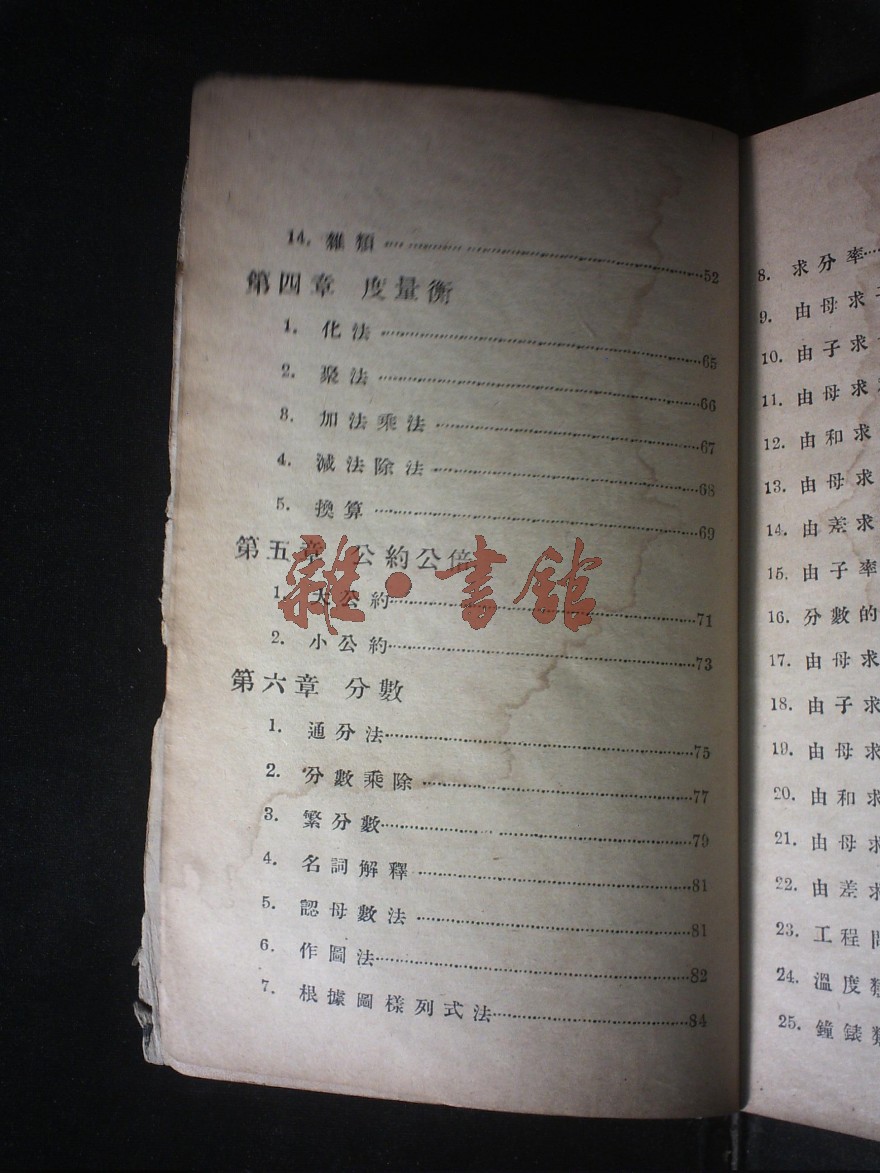 14. 雜類 52
第四章 度量衡
1. 化法 65
2. 聚法 66
3. 加法乘法 67
4. 減法除法 68
5. 換算 69
第五章 公約公倍
1. 大公約 71
2. 小公約 73
第六章 分數
1. 通分法 75
2. 分數乘除 77
3. 繁分數 79
4. 名詞解釋 81
5. 認母數法 81
6. 作圖法 82
7. 根據圖樣列式法 84
雜·書館
8. 求分率
9. 由母求子
10. 由子求
11. 由母求
12. 由和求
13. 由母求
14. 由差求
15. 由子率
16. 分數的
17. 由母求
18. 由子求
19. 由母求
20. 由和求
21. 由母求
22. 由差求
23. 工程問
24. 溫度類
25. 鐘錶類